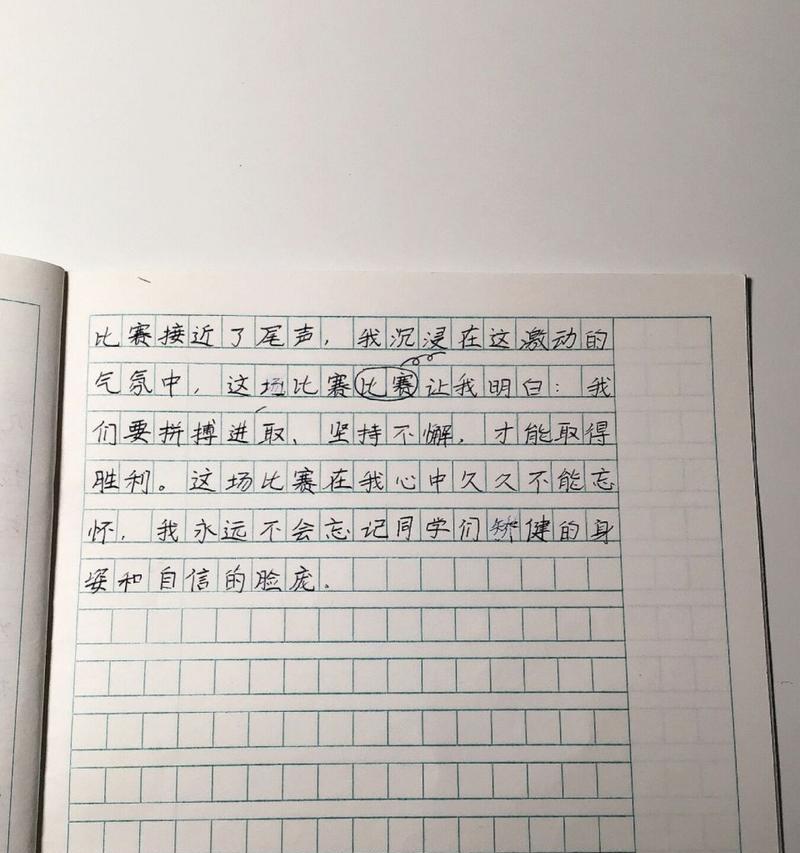 比赛接近了尾声，我沉浸在这激动的
气氛中，这场比赛比赛让我明白：我
们要拼搏进取、坚持不懈，才能取得
胜利。这场比赛在我心中久久不能忘
怀，我永远不会忘记同学们矫健的身
姿和自信的脸庞.